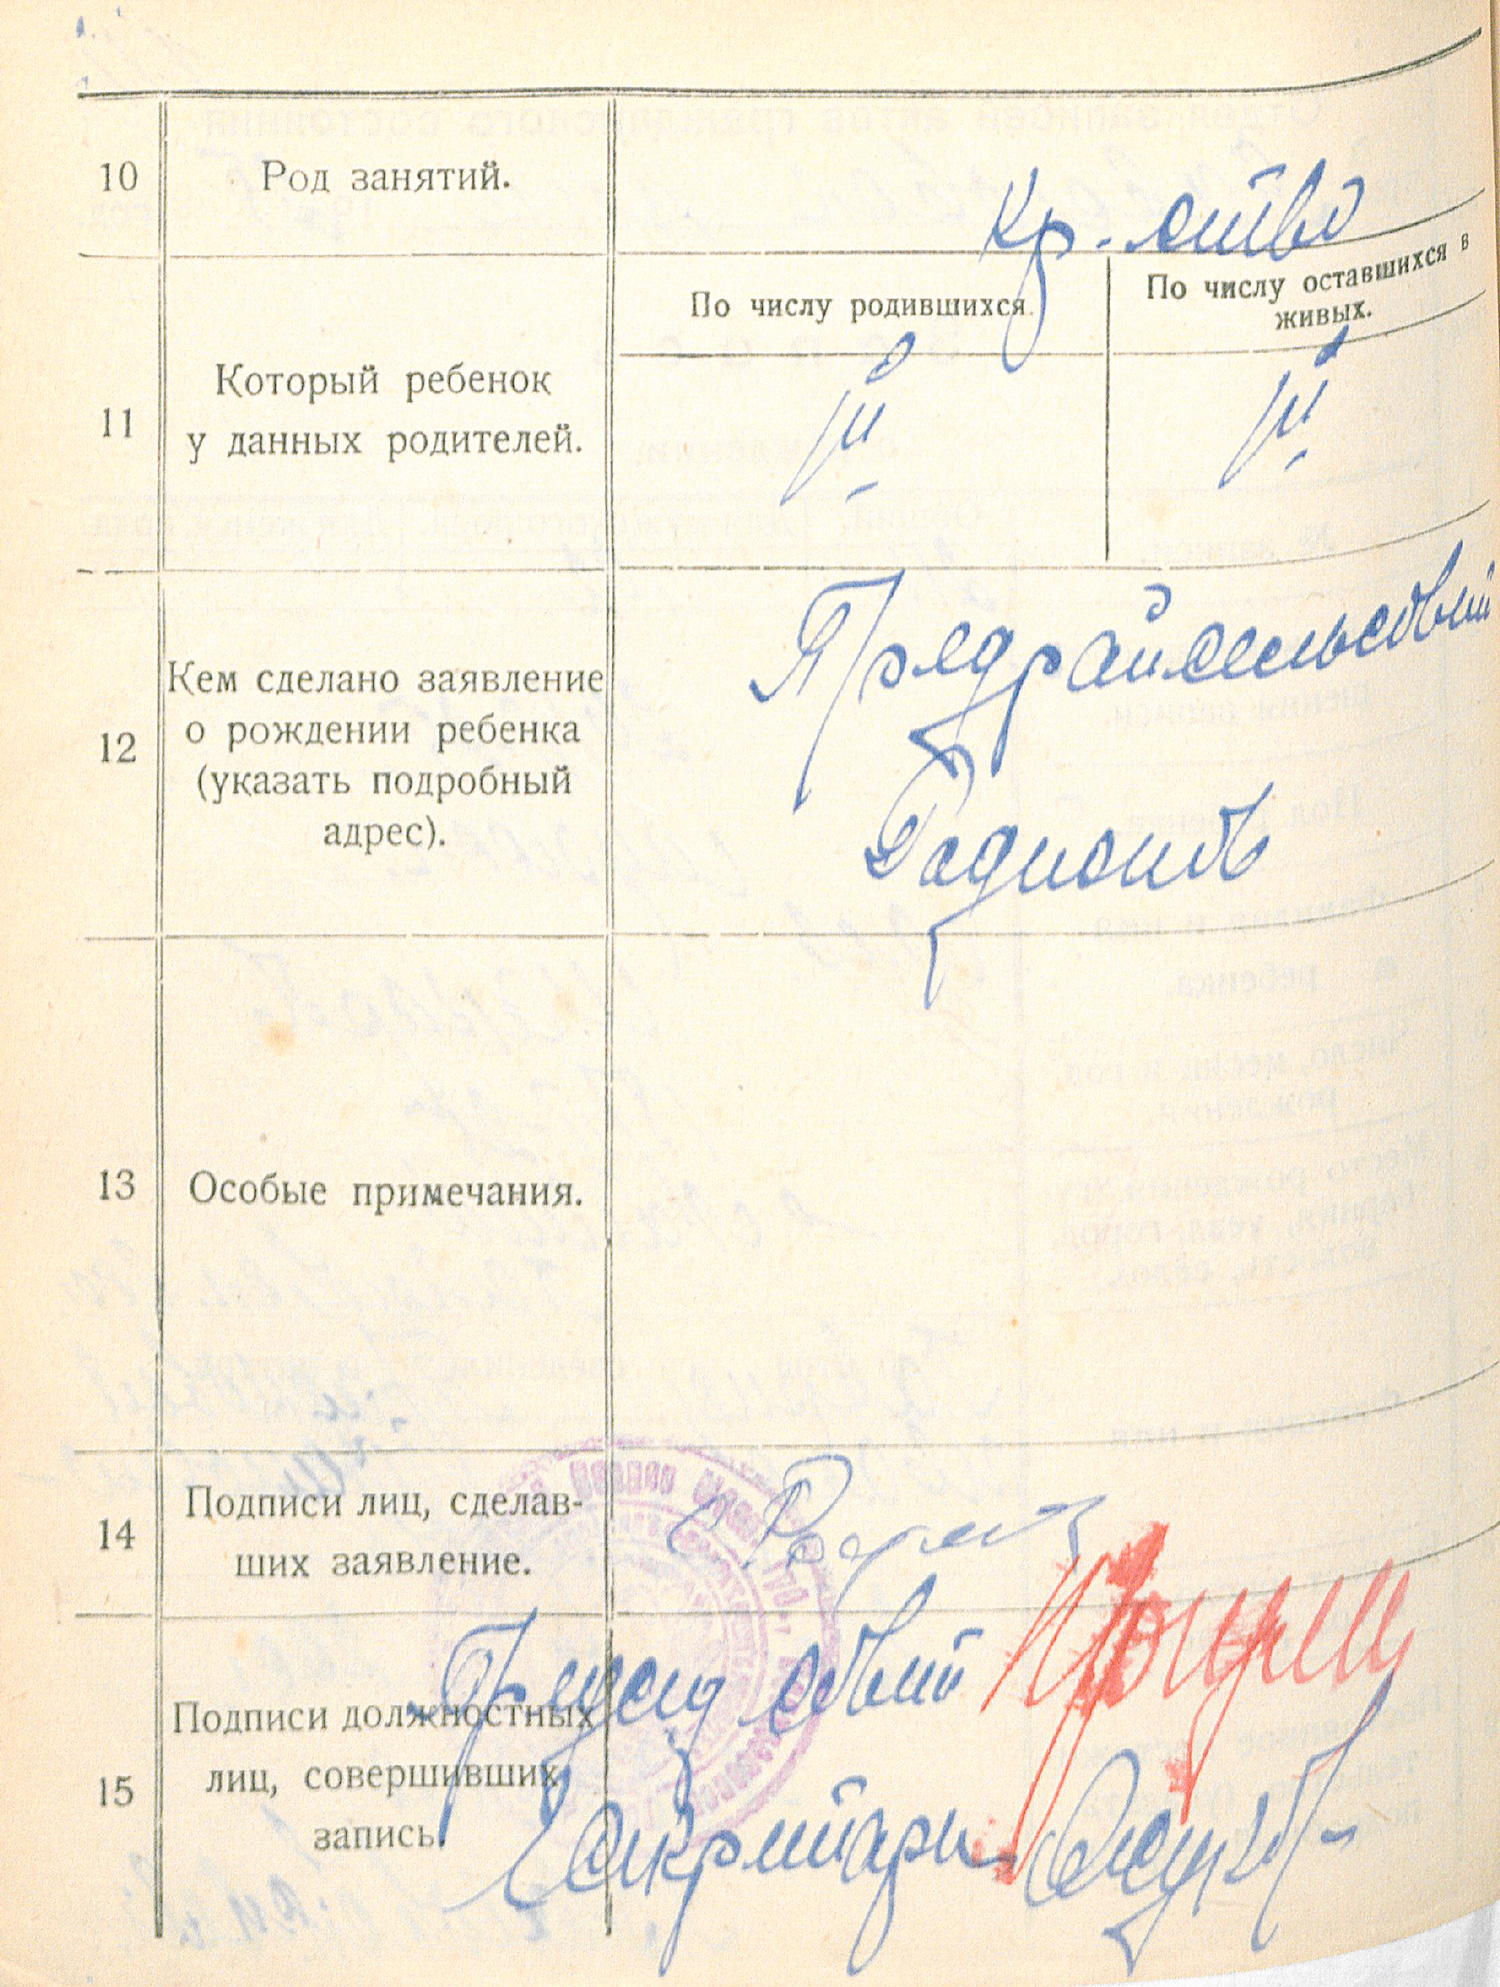 10
Род занятий.
Кр. ство
11
Который ребенок
у данных родителей.
По числу родившихся.
По числу оставшихся в
живых.
III
III
12
Кем сделано заявление
о рождении ребенка
(указать подробный
адрес).
Родионов
13
Особые примечания.
14
Подписи лиц, сделав-
ших заявление.
15
Подписи должностных
лиц, совершивших
запись.
Секретарь